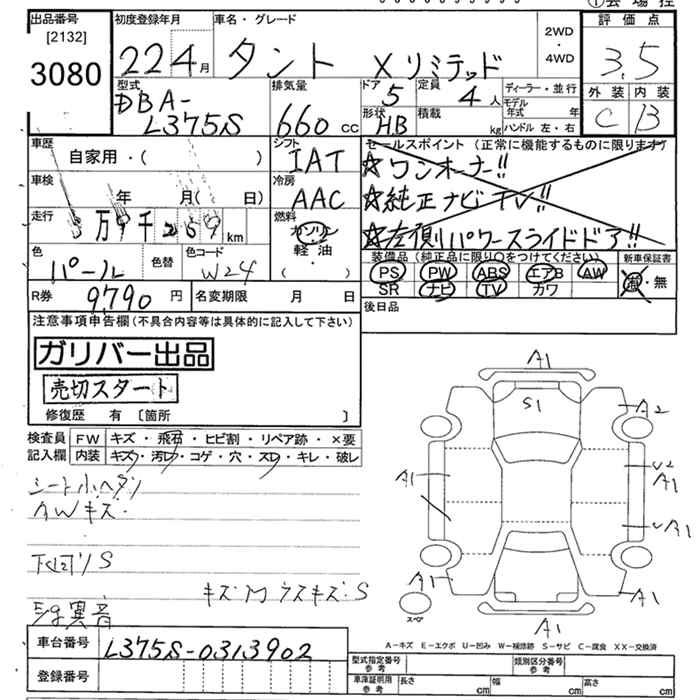 ①会場控
出品番号
[2132]
3080
初度登録年月
22 4月
車名・グレード
タント Xリミテッド
2WD
・
4WD
評価点
3.5
外装 内装
C B
型式
DBA-
L375S
排気量
660 CC
ドア
5
定員
4 人
形状
H.B
積載
kg
ディーラー・並行
モデル
年式 年
ハンドル 左・右
車歴
自家用・( )
シフト
IAT
セールスポイント(正常に機能するものに限ります)
☆ワンオーナー!!
☆純正ナビTV!!
☆左側パワースライドドア!!
車検
年 月( 日)
冷房
AAC
走行
3万9千269km
燃料
ガソリン
・
軽油
・
( )
色
パール
色替
色コード
W24
装備品(純正品に限り○をつけてください)
新車保証書
PS PW ABS エアB AW
SR ナビ TV カワ
有・無
R券
9,790円
名変期限 月 日
後日品
注意事項申告欄(不具合内容等は具体的に記入して下さい)
ガリバー出品
売切スタート
修復歴 有 〔箇所 〕
検査員
記入欄
FW キズ・飛石・ヒビ割・リペア跡・×要
内装 キズ・汚レ・コゲ・穴・スレ・キレ・破レ
シート小ヘタリ
AWキズ
下回リS
キズM ウスキズ:S
異音
車台番号
L375S-0313902
登録番号
A1
S1
A2
A1
U2
A1
UA1
A1
A1
A1
スペア
A−キズ E−エクボ U−凹み W−補修跡 S−サビ C−腐食 XX−交換済
型式指定番号
参考
類別区分番号
参考
車庫証明用
参考
長さ cm
幅 cm
高さ cm